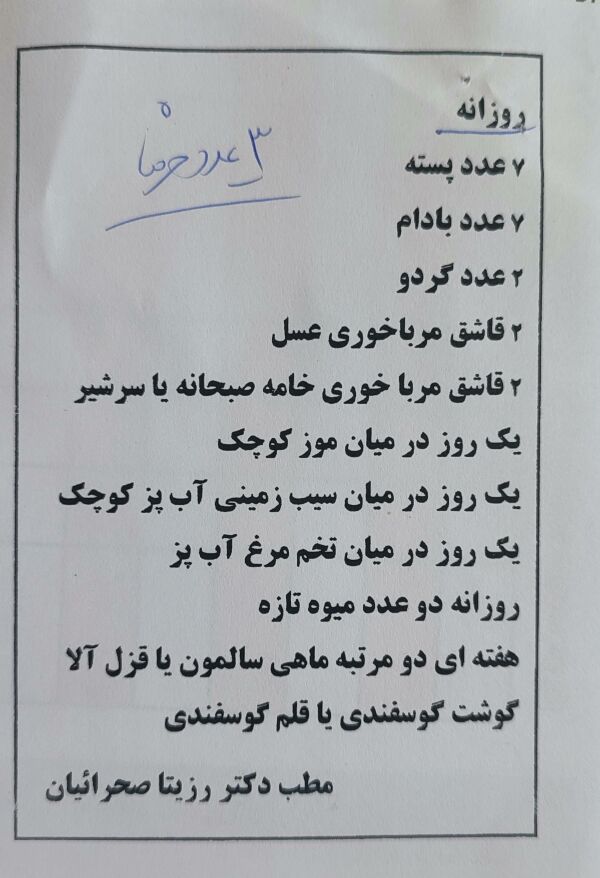 روزانه
۳ عدد خرما
۷ عدد پسته
۷ عدد بادام
۲ عدد گردو
۲ قاشق مرباخوری عسل
۲ قاشق مربا خوری خامه صبحانه یا سرشیر
یک روز در میان موز کوچک
یک روز در میان سیب زمینی آب پز کوچک
یک روز در میان تخم مرغ آب پز
روزانه دو عدد میوه تازه
هفته ای دو مرتبه ماهی سالمون یا قزل آلا
گوشت گوسفندی یا قلم گوسفندی
مطب دکتر رزیتا صحرائیان